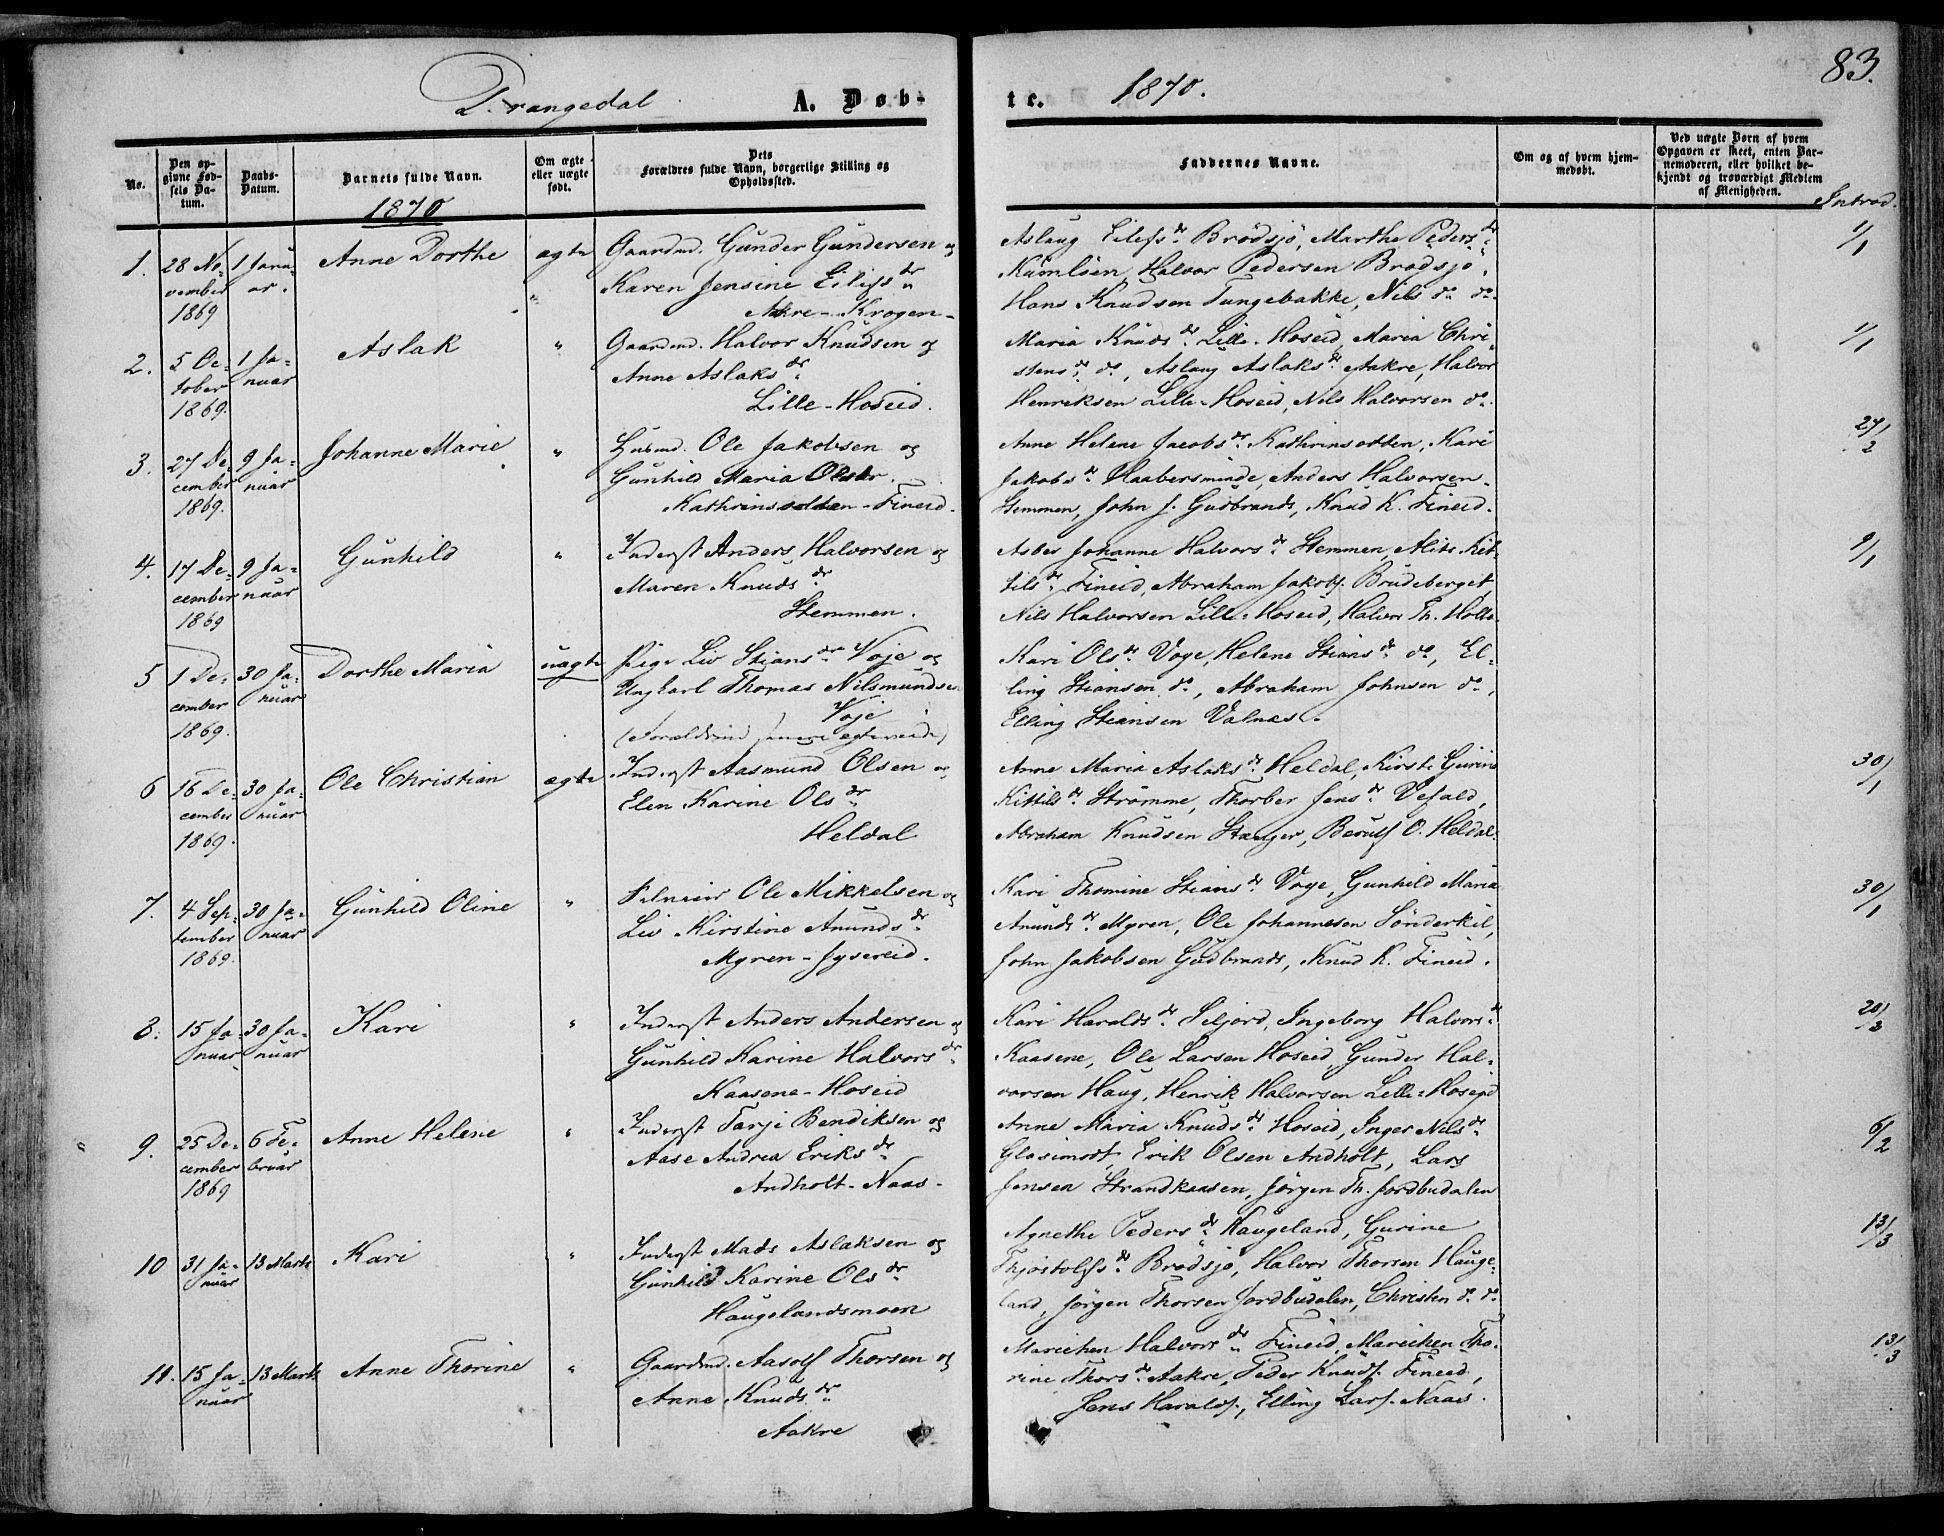 83.
Drangedal A. Døb-
te. 1870.
No.
Den op-
givne Fød-
sels Da-
tum.
Daabs-
Datum.
Barnets fulde Navn.
Om ægte
eller uægte
født.
Dets
Forældres fulde Navn, borgerlige Stilling og
Opholdssted.
Faddernes Navne.
Om og af hvem hjem-
medøbt.
Ved uægte Børn af hvem
Opgaven er skeet, enten Bar-
nemoderen, eller hvilket be-
kjendt og troværdigt Medlem
af Menigheden.
Introd.
1870
1. 28 No-
vember
1869
1 Janu-
ar.
Anne Dorthe
ægte
"
Gaardmd. Gunder Gundersen og
Karen Jensine Eilifsdr
Aakre-Krogen-
Aslaug Eilefsdr Brødsjø, Marthe Pedersdr
Kumlien, Halvor Pedersen Brødsjø,
Hans Knudsen Tungebakke, Nils do do.
1/1
2. 5 Oc-
tober
1869.
1 Ja-
nuar
Aslak
"
Gaardmd. Halvor Knudsen og
Anne Aslaksdr
Lille-Hoseid.
Maria Knudsdr Lille-Hoseid, Maria Chri-
stensdr do, Aslaug Aslaksdr Aakre, Halvor
Henriksen Lille-Hoseid, Nils Halvorsen do.
1/1
3. 27 De-
cember
1869.
9 Ja-
nuar
Johanne Marie
"
Husmd. Ole Jakobsen og
Gunhild Maria Olsdr.
Kathrinsodden-Fineid.
Anne Helene Jacobsdr Kathrinsodden, Kari
Jakobsdr Haabersminde, Anders Halvorsen
Stemmen, John J. Gudbrands, Knud K. Fineid.
27/2
4. 17 De-
cember
1869
9 Ja-
nuar
Gunhild
"
Inderst Anders Halvorsen og
Maren Knudsdr
Stemmen.
Asbør Johanne Halvorsdr Stemmen, Alits Kit-
tilsdr Fineid, Abraham Jakobs. Brudeberget,
Nils Halvorsen Lille-Hoseid, Halvor Th. Holte
9/1
5 1 De-
cember
1869.
30 Ja-
nuar
Dorthe Maria
uægte
Pige Liv Stiansdr Voje og
Ungkarl Thomas Nilsmundsen
Voje
(Forældrene senere ægteviede)
Kari Olsdr Voge, Helene Stiansdr do, El-
ling Stiansen do, Abraham Johnsen do,
Elling Stiansen Valnas.
6 16 De-
cember
1869.
30 Ja-
nuar
Ole Christian
ægte
Inderst Aasmund Olsen og
Elen Karine Olsdr
Heldal
Anne Maria Aslaksdr Heldal, Kirsti Gurine
Kittilsdr Strømme, Thorber Jensdr Vefald,
Abraham Knudsen Stanger, Berulf O. Heldal.
30/1
7. 4 Sep-
tember
1869.
30 Ja-
nuar
Gunhild Oline
"
Ole Mikkelsen og
Liv Kirstine Anundsdr
Myren-Jysereid.
Kari Thomine Stiansdr Voge, Gunhild Maria
Anundsdr Myren, Ole Johannesen Sønderkil,
John Jakobsen Gudbrands, Knud K. Fineid.
30/1
8. 15 Ja-
nuar
30 Ja-
nuar
Kari
"
Inderst Anders Andersen og
Gunhild Karine Halvorsdr
Kaasene-Hoseid
Kari Haraldsdr Siljord, Ingeborg Halvorsdr
Kaasene, Ole Larsen Hoseid, Gunder Hal-
vorsen Haug, Henrik Halvorsen Lille-Hoseid
20/3
9. 25 De-
cember
1869
6 Fe-
bruar
Anne Helene
"
Inderst Tarje Bendiksen og
Aase Andrea Eriksdr
Andholt-Naas-
Anne Maria Knudsdr Hoseid, Inger Nilsdr
Glasimodt, Erik Olsen Andholt, Lars
Jensen Strandkaasen, Jørgen Th. Jordbudalen
6/2
10 31 Ja-
nuar
13 Marts
Kari
"
Inderst Mads Aslaksen og
Gunhild Karine Olsdr
Haugelandsmoen
Agnethe Pedersdr Haugeland, Gurine
Thjostolfsdr Brødsjø, Halvor Thorsen Hauge-
land, Jørgen Thorsen Jordbudalen, Christen do do
13/3
11. 15 Ja-
nuar
13 Marts
Anne Thorine
"
Gaardmd. Aasolf Thorsen og
Anne Knudsdr
Aakre
Mariehen Halvorsdr Fineid, Mareichen Tho-
rine Thorsdr Aakre, Peder Knuds. Fineid,
Jens Haralds., Elling Lars. Naas.
13/3